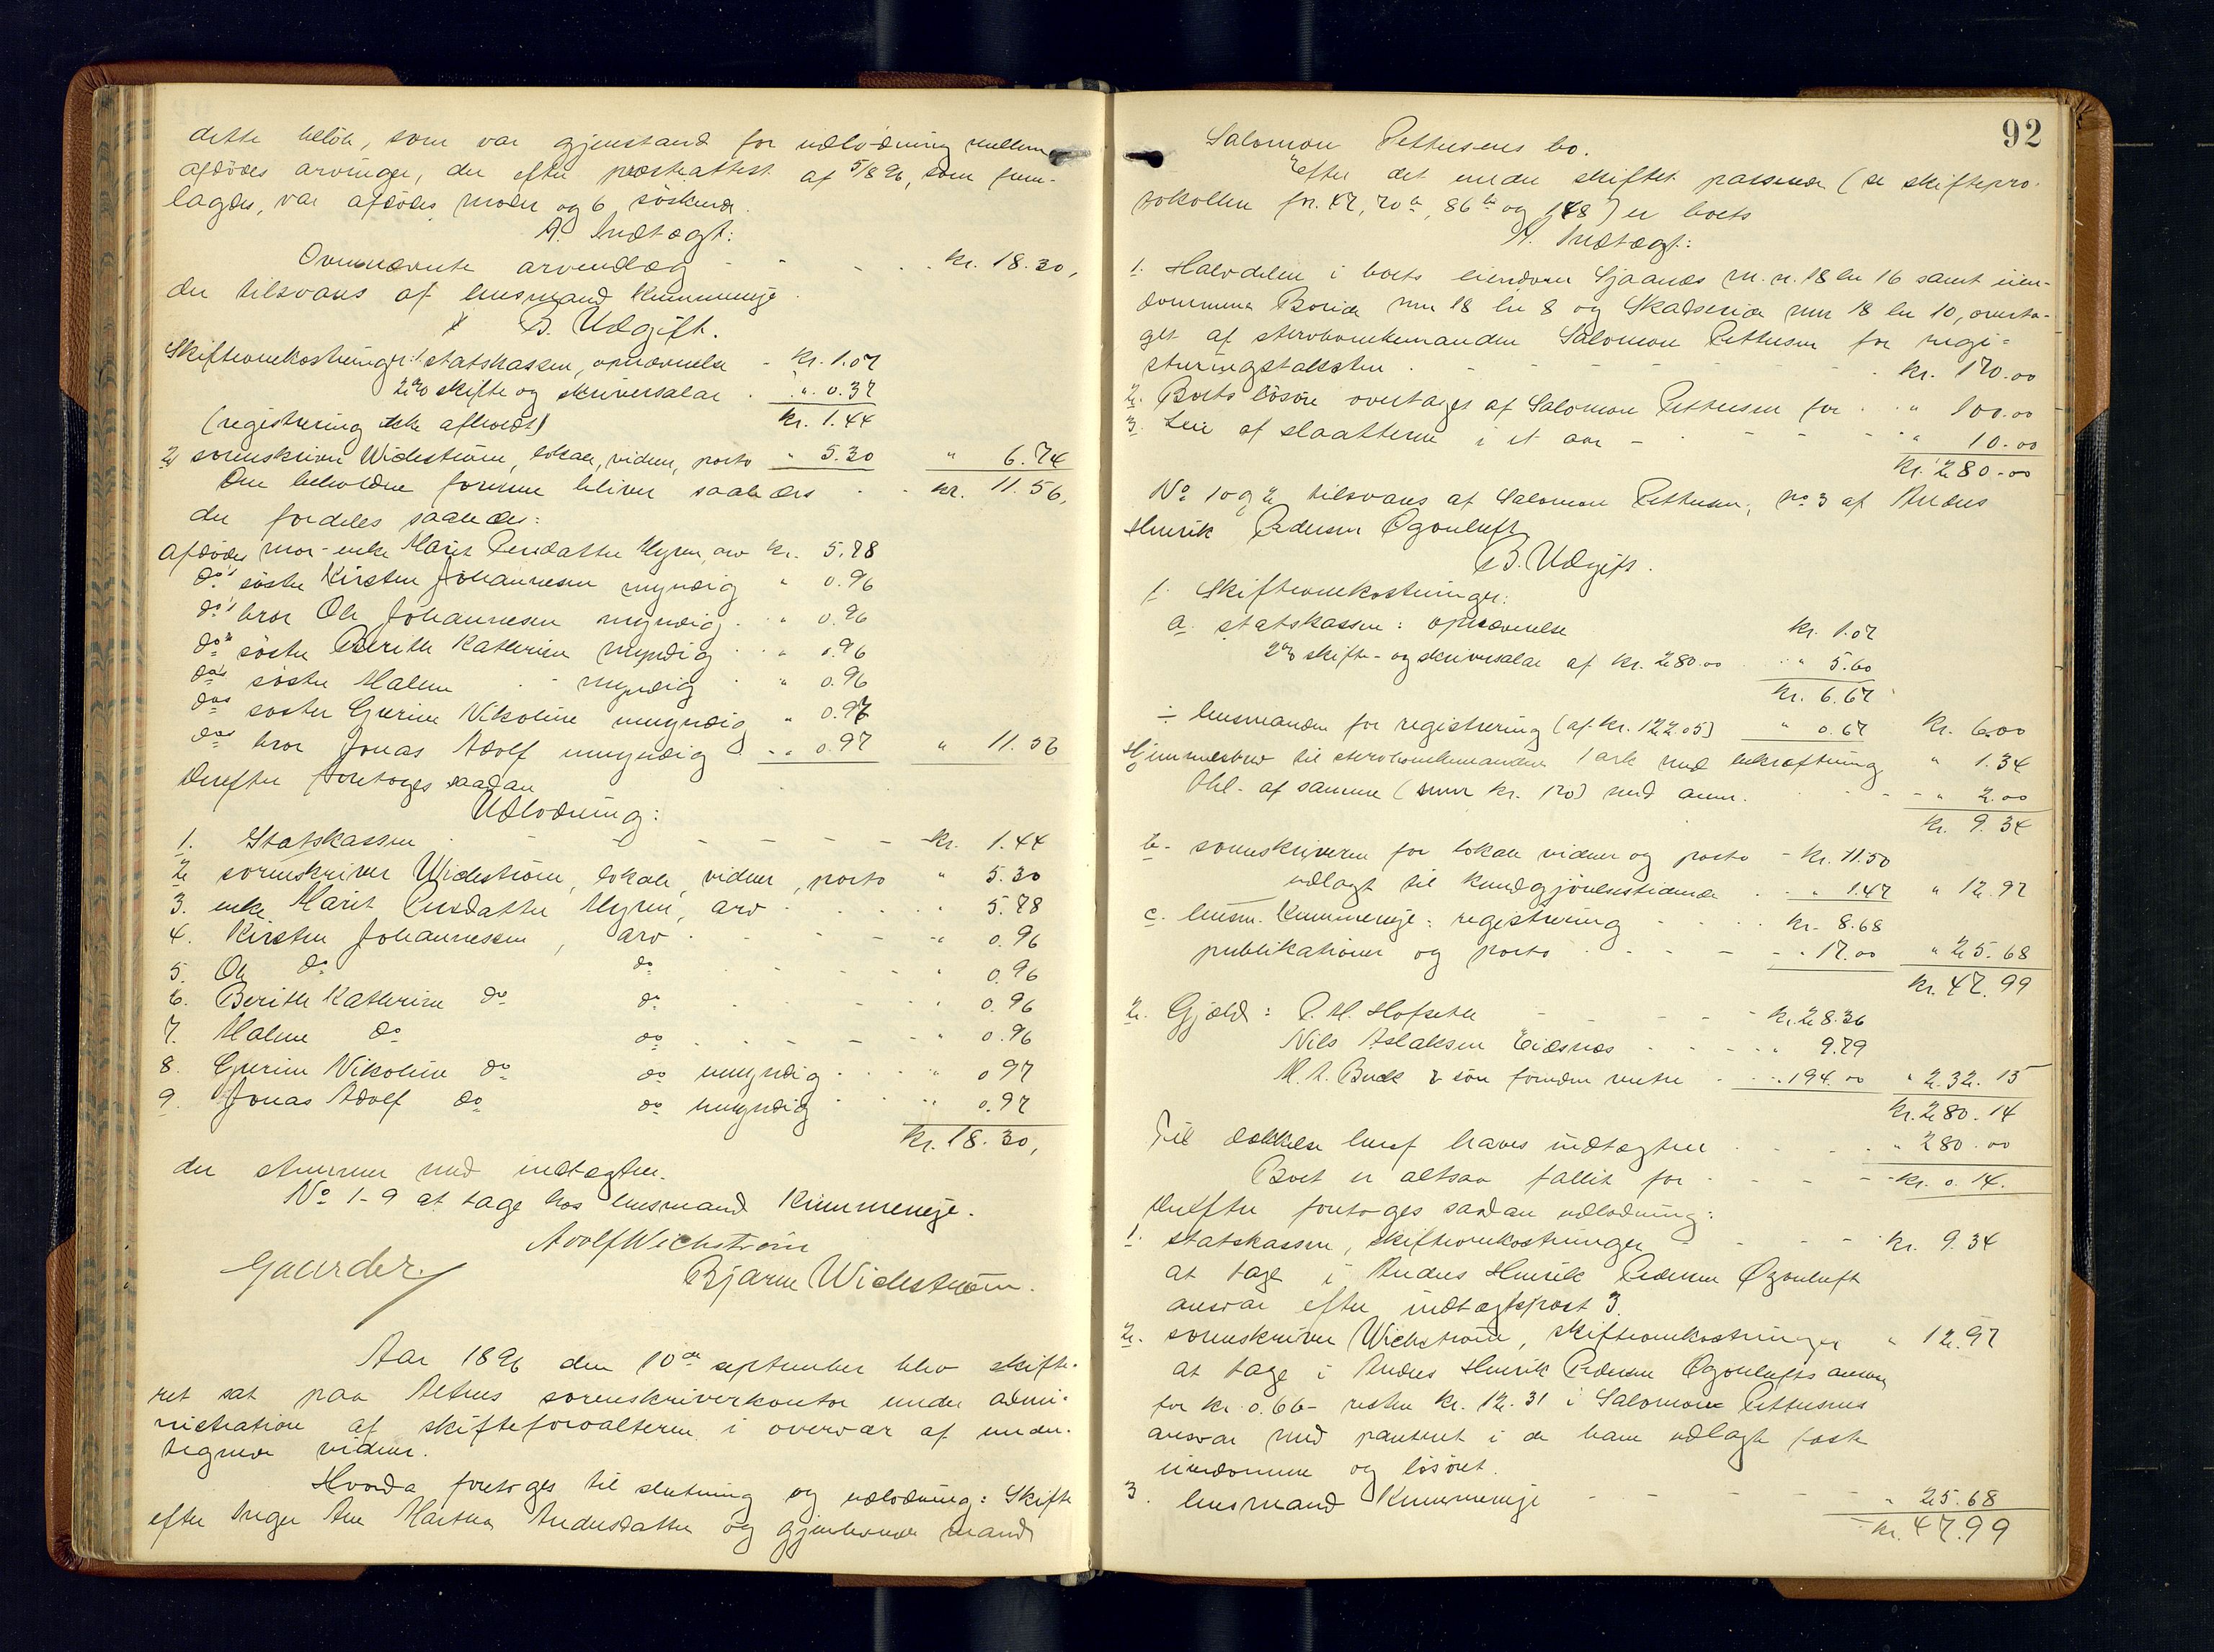 dette beløb, som var gjenstand for udlodning mellem
afdødes arvinger, der efter presteattest af 5/8 96, som frem-
lagdes, var afdødes moder og 6 söskende.
A. Indtægt:
Ovennævnte arvendlæg - - - . . kr. 18.30,
der tilsvares af lensmand Kummeneje.
B. Udgift.
Skifteomkostninger: 1 statskassen, opnævnelse - kr. 1.07
2% skifte og skriversalær . . " 0.37
(registrering ikke afholdt) kr. 1.44
2, sorenskriver Wichstrøm, lokale, vidner, porto " 5.30 " 6.74
Den beholdne formue bliver saaledes . . kr. 11.56,
der fordeles saaledes:
Afdødes mor - enke Marit Persdatter Myren, arv kr. 5.78
do's söster Kirsten Johannesen myndig " 0.96
do's bror Ole Johannesen myndig . . " 0.96
do's söster Berith Kathrine myndig . . " 0.96
do's söster Malene - myndig . " 0.96
do's söster Gurine Nikoline umyndig " 0.97
do's bror Jonas Adolf umyndig . . " 0.97 " 11.56
Derefter foretoges saadan
Udlodning:
1. Statskassen . - - - - - kr. 1.44
2. sorenskriver Wichstrøm, lokale, vidner, porto " 5.30
3. enke Marit Persdatter Myren, arv . . . . " 5.78
4. Kirsten Johannesen, arv . - - - " 0.96
5. Ole do do . . - - - " 0.96
6. Berith Kathrine do do . . . . " 0.96
7. Malene do do . . - - - " 0.96
8. Gurine Nikoline do do umyndig . . . " 0.97
9. Jonas Adolf do do umyndig . . " 0.97
kr. 18.30,
der stemmer med indtægten.
No 1-9 at tage hos lensmand Kummeneje.
Adolf Wichstrøm
Gaarder. Bjarne Wichstrøm.
Aar 1896 den 10de september blev skifte-
ret sat paa Altens sorenskriverkontor under admi-
nistration af skifteforvalteren i overvær af under-
tegnede vidner.
Hvorda foretoges til slutning og udlodning: Skifte
efter Inger Ane Marthea Andersdatter og gjenlevende mand
92
Salomon Pettersens bo.
Efter det under skiftet passerede (se skiftepro-
tokollen fol. 47, 70b, 86b og 148) er boets
A. Indtægt:
1. Halvdelen i boets eiendom Sjaanes m. n. 18 ln 16 samt eien-
dommene mnr 18 ln 8 og mnr 18 ln 10, overta-
get af stervboenkemanden Salomon Pettersen for regi-
streringstaksten . - - - - - . kr. 170.00
2. Boets løsöre overtages af Salomon Pettersen for . . " 100.00
3. Leie af slaatterne i et aar - . - - - . " 10.00
kr. 280.00
No 1 og 2 tilsvares af Salomon Pettersen, no 3 af Anders
Henrik Pedersen Øgonluft
B. Udgift.
1. Skifteomkostninger:
a. statskassen: opnævnelse kr. 1.07
2% skifte- og skriversalær af kr. 280.00 . . " 5.60
kr. 6.67
÷ lensmanden for registrering (af kr. 122.05) " 0.67 kr. 6.00
Hjemmelsbrev til stervboenkemanden 1 ark med bekræftning " 1.34
thl. af samme (sum kr. 170) med anm. . . - - - " 2.00
kr. 9.34
b. sorenskriveren for lokale vidner og porto - kr. 11.50
udlagt til kundgjörelsestidende . . " 1.47 " 12.97
c. lensm. Kummeneje: registrering . . . kr. 8.68
publikationer og porto . . - - - " 17.00 " 25.68
kr. 47.99
2. Gjæld: P. M. Hofseth - - - - - kr. 28.36
Nils Aslaksen Eidsnes . - - - " 9.79
M. A. Buck & sön foruden renter . . . 194.00 " 232.15
kr. 280.14
Til dækkelse heraf haves indtægten . . . . " 280.00
Boet er altsaa fallit for . . - - - kr. 0.14.
Derefter foretoges saadan udlodning:
1. statskassen, skifteomkostninger - - - - kr. 9.34
at tage i Anders Henrik Pedersen Øgonluft
ansvar efter indtægtspost 3.
2. sorenskriver Wichstrøm, skifteomkostninger " 12.97
at tage i Anders Henrik Pedersen Øgonlufts ansvar
for kr. 0.66 - resten kr. 12.31 i Salomon Pettersens
ansvar med panteret i de ham udlagte faste
eiendomme og løsöret.
3. lensmand Kummeneje - - - - - " 25.68
kr. 47.99